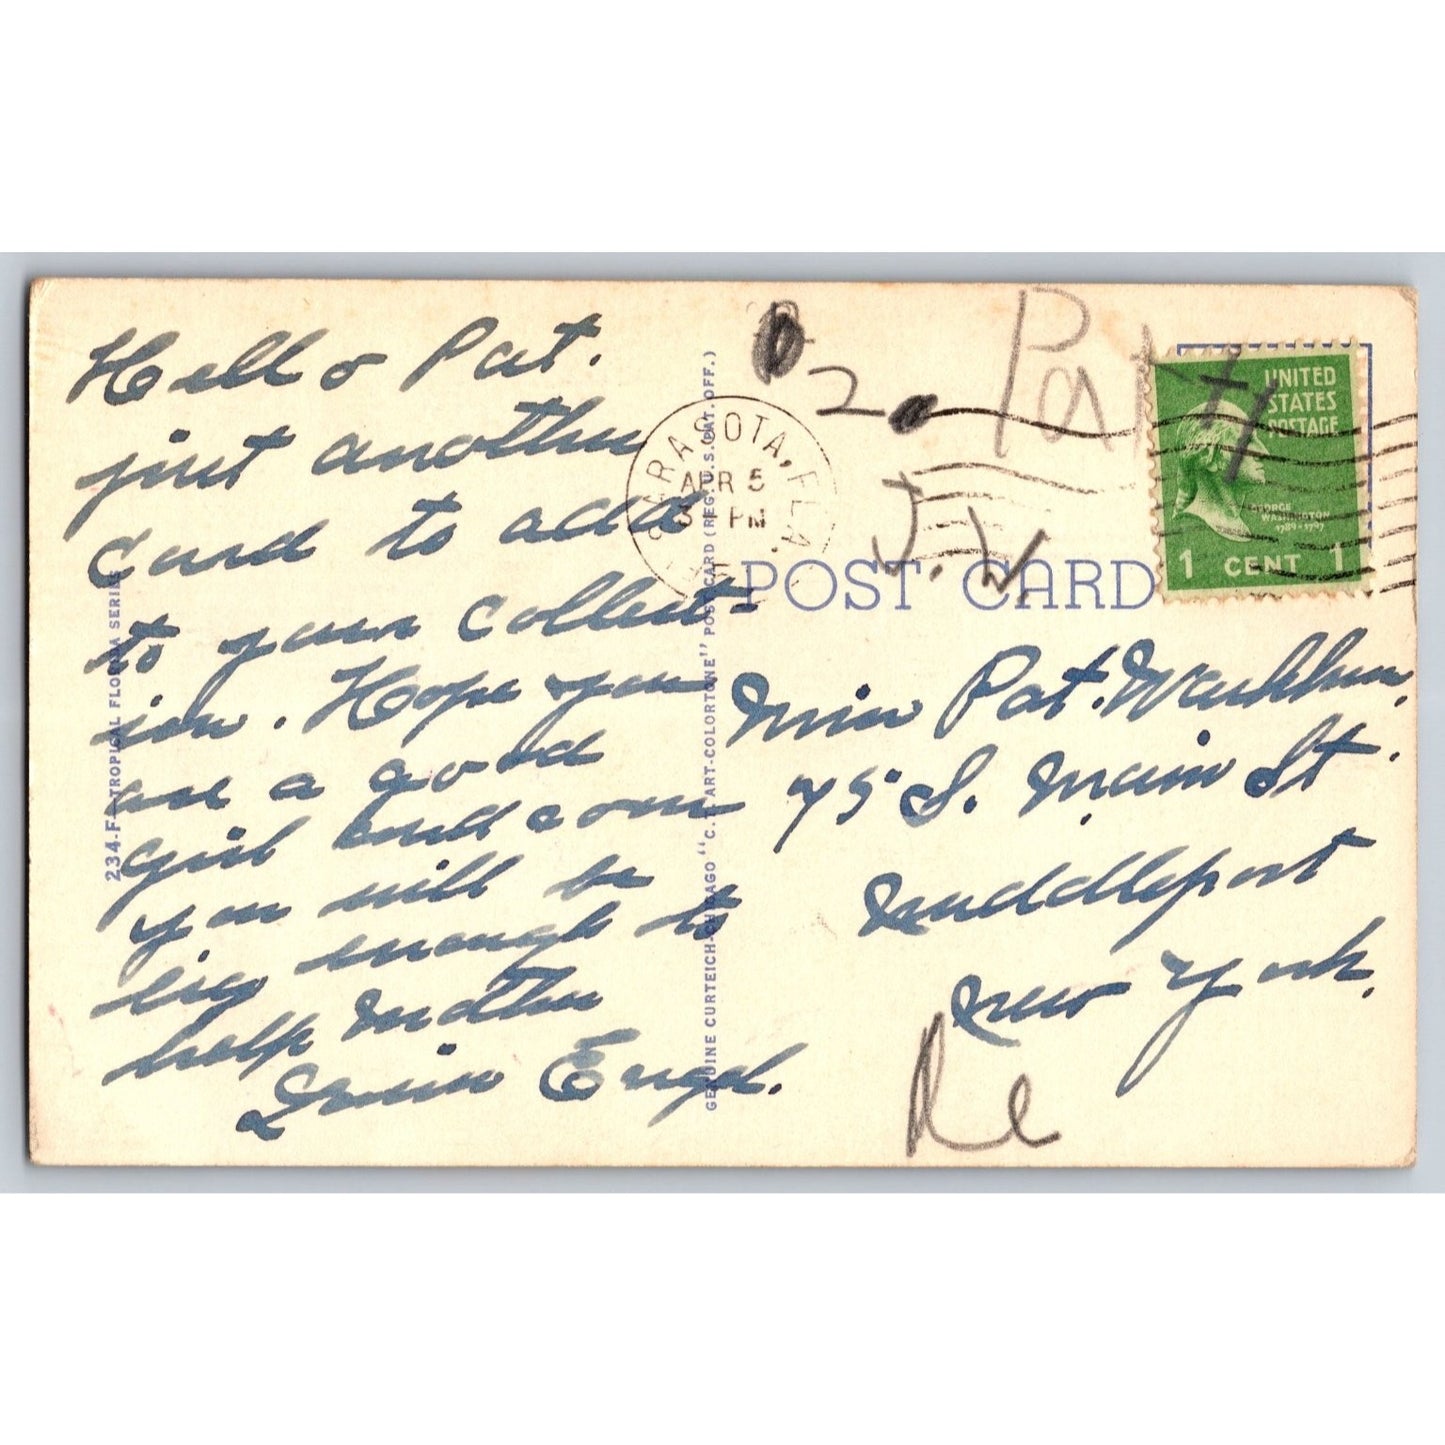 Hello Pat.
just another
Card to add
to your Collect-
ion. Hope you
are a good
girl and soon
you will be
big enough to
help Mother
234-F—TROPICAL FLORIDA SERIES
GENUINE CURTEICH-CHICAGO "C.T. ART-COLORTONE" POST CARD (REG. U.S. PAT. OFF.)
SARASOTA, FLA.
APR 5
3 PM
2
Patty
J.W.
UNITED
STATES
POSTAGE
GEORGE
WASHINGTON
1789-1797
1 CENT 1
POST CARD
Miss Pat. Washburn.
75 S. Main St.
Middleport
New York.